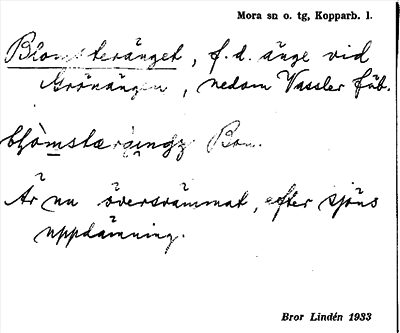 Mora sn o. tg, Kopparb. l.
Blomsteränget, f.d. änge vid
Grönängen, nedom Vassler fäb.
Är nu översvämmat, efter sjöns
uppdämning.
Bror Lindén 1933